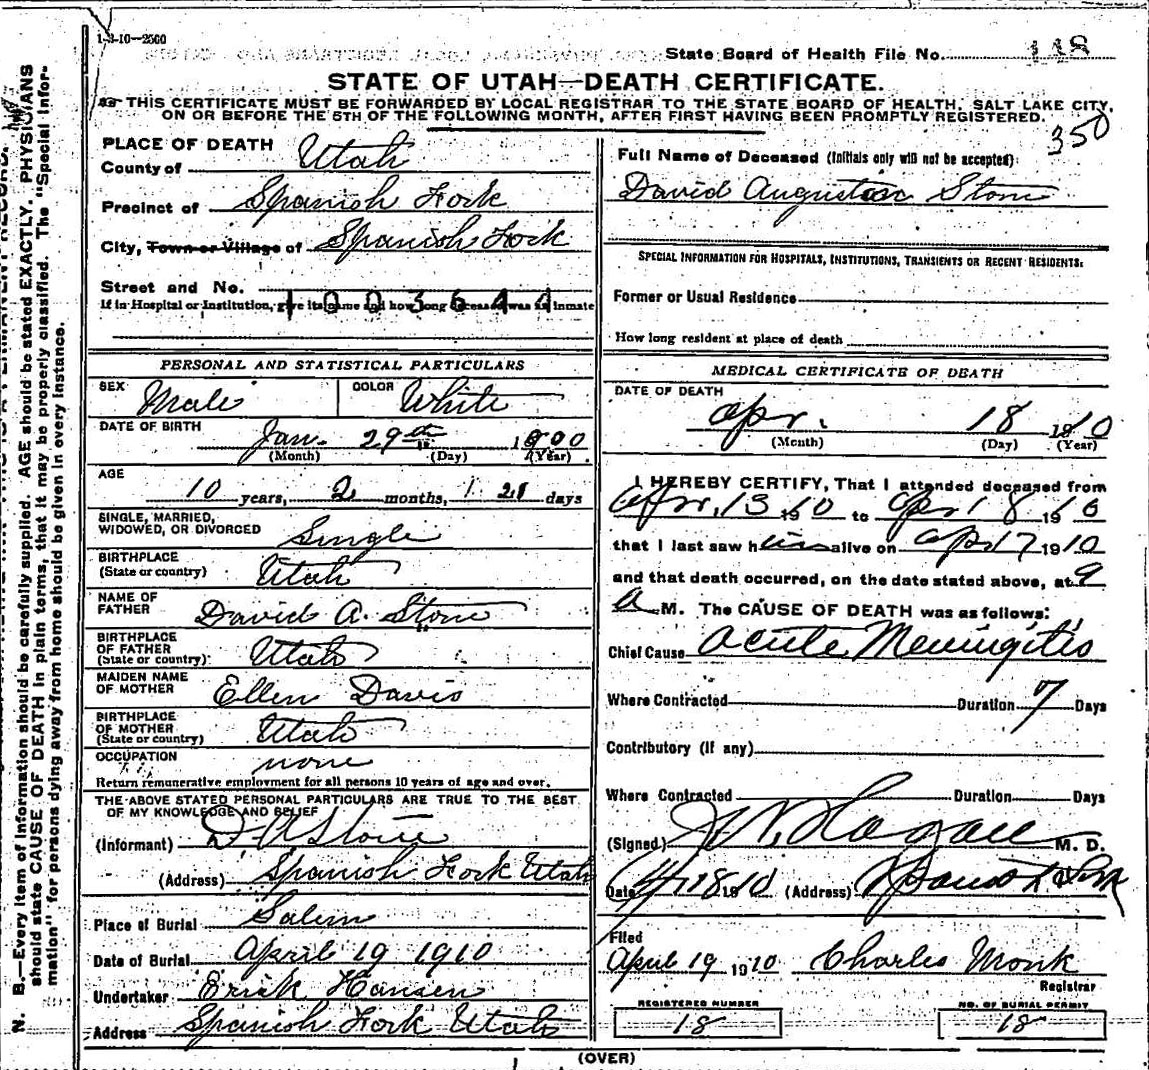 1-3-10—2500
State Board of Health File No. 118
STATE OF UTAH—DEATH CERTIFICATE.
THIS CERTIFICATE MUST BE FORWARDED BY LOCAL REGISTRAR TO THE STATE BOARD OF HEALTH, SALT LAKE CITY,
ON OR BEFORE THE 5TH OF THE FOLLOWING MONTH, AFTER FIRST HAVING BEEN PROMPTLY REGISTERED.
350
PLACE OF DEATH
County of Utah
Precinct of Spanish Fork
City, Town or Village of Spanish Fork
Street and No.
1003644
If in Hospital or Institution, give its name and how long deceased was an inmate
PERSONAL AND STATISTICAL PARTICULARS
SEX Male COLOR White
DATE OF BIRTH Jan. 29th 1900
(Month) (Day) (Year)
AGE
10 years, 2 months, 21 days
SINGLE, MARRIED,
WIDOWED, OR DIVORCED Single
BIRTHPLACE
(State or country) Utah
NAME OF
FATHER David A. Stone
BIRTHPLACE
OF FATHER
(State or country) Utah
MAIDEN NAME
OF MOTHER Ellen Davis
BIRTHPLACE
OF MOTHER
(State or country) Utah
OCCUPATION none
Return remunerative employment for all persons 10 years of age and over.
THE ABOVE STATED PERSONAL PARTICULARS ARE TRUE TO THE BEST
OF MY KNOWLEDGE AND BELIEF
(Informant) D A Stone
(Address) Spanish Fork Utah
Place of Burial Salem
Date of Burial April 19 1910
Undertaker Erick Hansen
Address Spanish Fork Utah
Full Name of Deceased (Initials only will not be accepted)
David Augustus Stone
SPECIAL INFORMATION FOR HOSPITALS, INSTITUTIONS, TRANSIENTS OR RECENT RESIDENTS:
Former or Usual Residence
How long resident at place of death
MEDICAL CERTIFICATE OF DEATH
DATE OF DEATH
Apr. 18 1910
(Month) (Day) (Year)
I HEREBY CERTIFY, That I attended deceased from
Apr. 13 1910 to Apr 18 1910
that I last saw him alive on Apr 17 1910
and that death occurred, on the date stated above, at 9
A M. The CAUSE OF DEATH was as follows:
Chief Cause Acute Meningitis
Where Contracted Duration 7 Days
Contributory (If any)
Where Contracted Duration Days
(Signed) Hagan M. D.
Date 4/18 1910 (Address) Spanish Fork
Filed
April 19 1910 Charles Monk
Registrar
REGISTERED NUMBER
18
NO. OF BURIAL PERMIT
18
(OVER)
N. B.—Every item of information should be carefully supplied. AGE should be stated EXACTLY. PHYSICIANS
should state CAUSE OF DEATH in plain terms, that it may be properly classified. The "Special Infor-
mation" for persons dying away from home should be given in every instance.